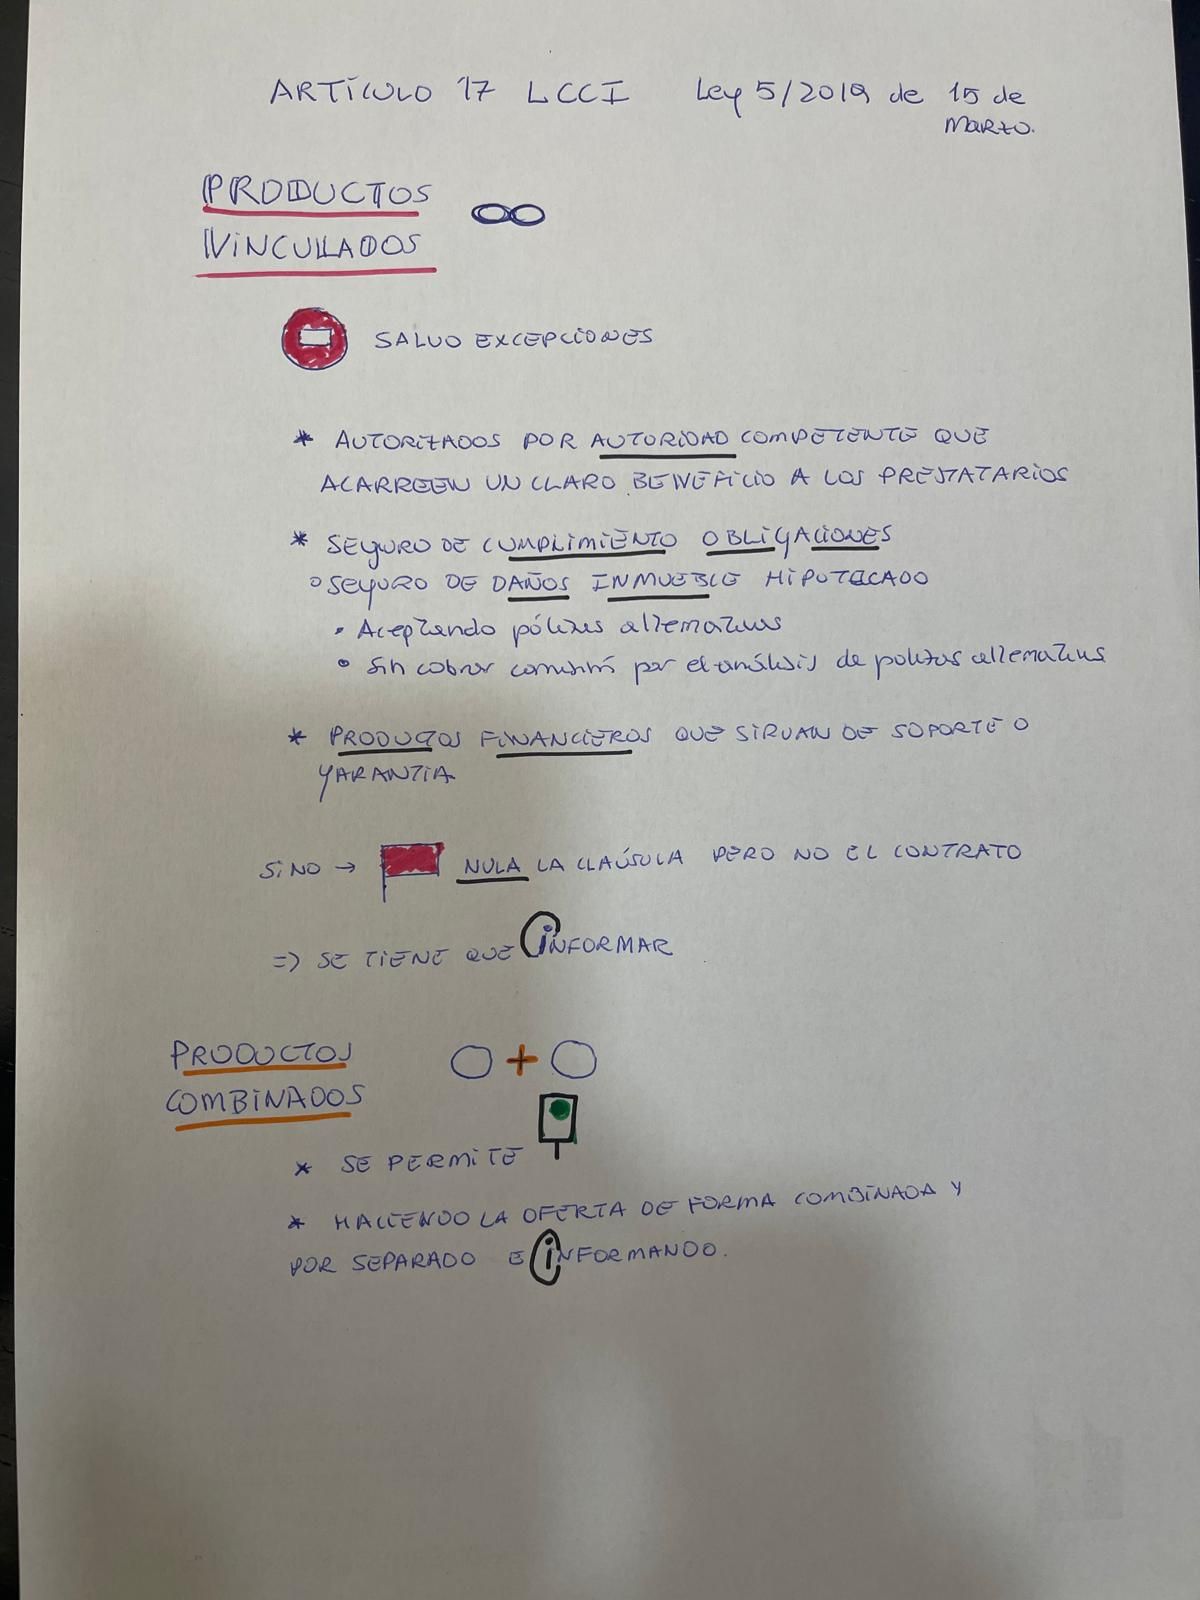 ARTÍCULO 17 LCCI Ley 5/2019 de 15 de
MARZO.
PRODUCTOS
VINCULADOS
SALVO EXCEPCIONES
* AUTORIZADOS POR AUTORIDAD COMPETENTE QUE
ACARREEN UN CLARO BENEFICIO A LOS PRESTATARIOS
* SEGURO DE CUMPLIMIENTO OBLIGACIONES
° SEGURO DE DAÑOS INMUEBLE HIPOTECADO
• Aceptando pólizas alternativas
• Sin cobrar comisión por el análisis de polizas alternativas
* PRODUCTOS FINANCIEROS QUE SIRVAN DE SOPORTE O
GARANTIA
SINO → NULA LA CLAÚSULA PERO NO EL CONTRATO
=> SE TIENE QUE INFORMAR
PRODUCTOS
COMBINADOS
* SE PERMITE
* HACIENDO LA OFERTA DE FORMA COMBINADA Y
POR SEPARADO E INFORMANDO.